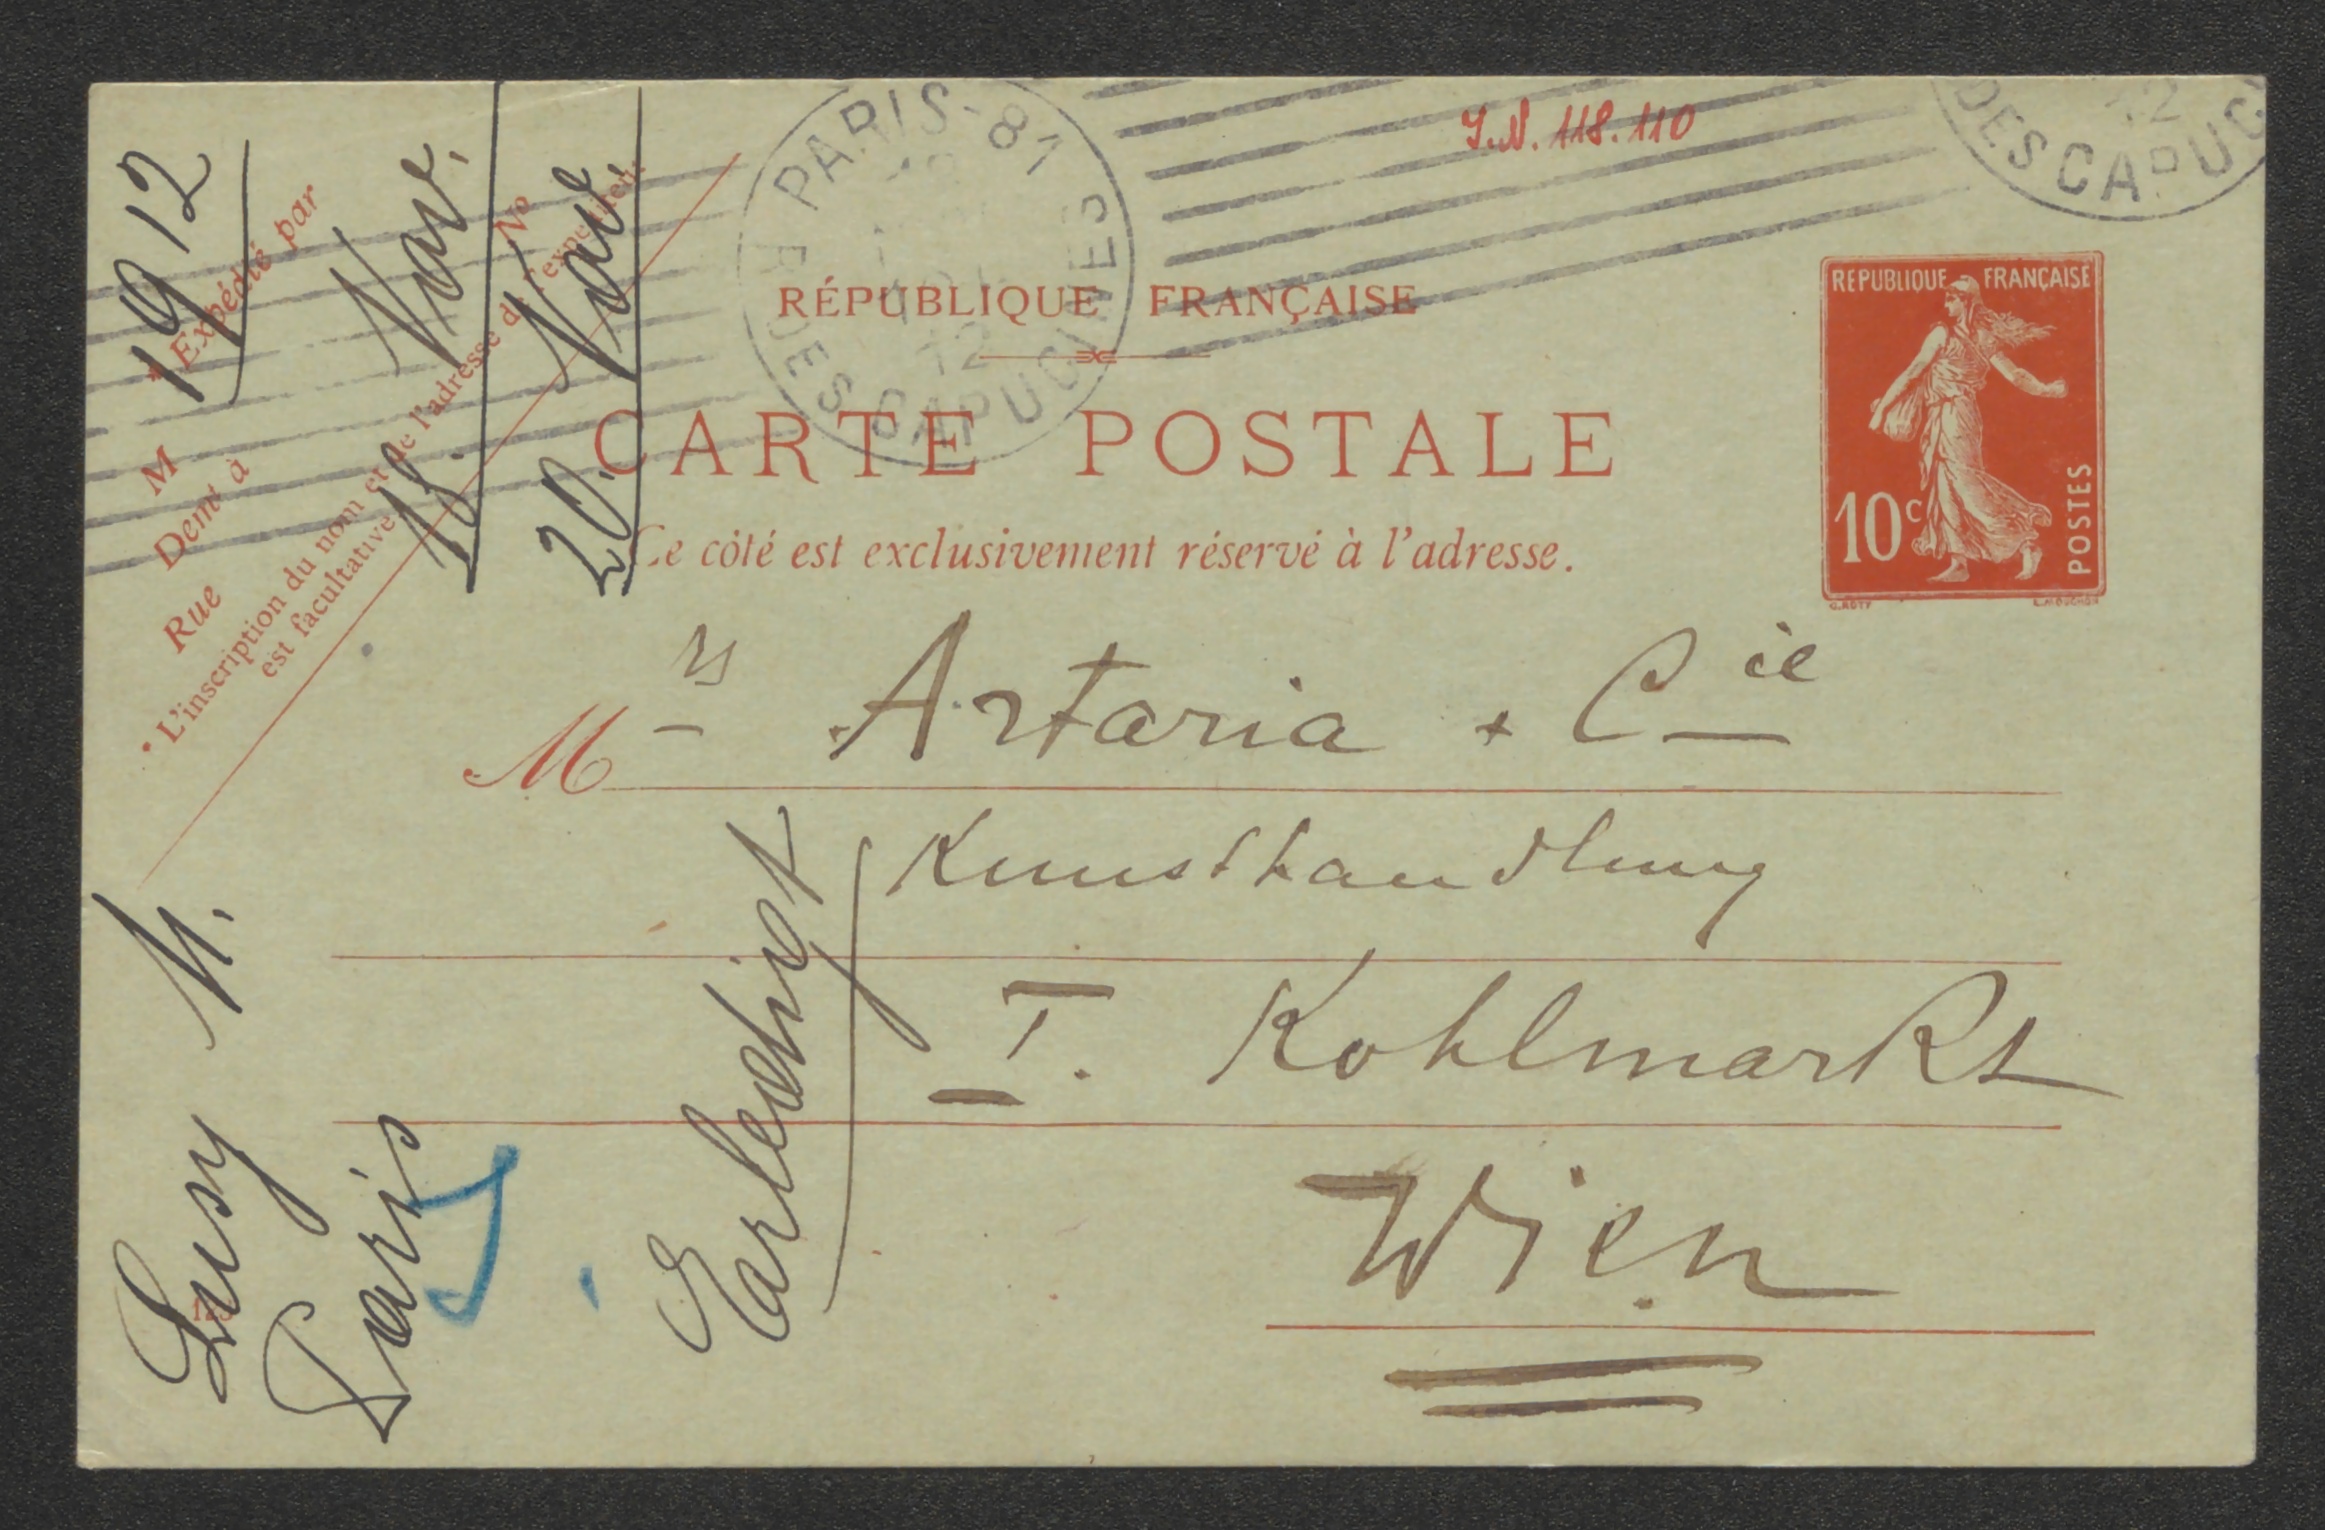 PARIS-81
R. DES CAPUCINES
12
J.N. 118.110
12
DES CAPUC
RÉPUBLIQUE FRANÇAISE
CARTE POSTALE
Ce côté est exclusivement réservé à l'adresse.
REPUBLIQUE FRANÇAISE
10c
POSTES
O. ROTY
L. MOUCHON
* Expédié par
M
Demt à
Rue
No
* L'inscription du nom et de l'adresse de l'expéditeur
est facultative.
1912
18. Nov.
20. Nov.
Mrs Artaria + Cie
Kunsthandlung
I. Kohlmarkt
Wien
Lusy M.
Paris
Earledhigt